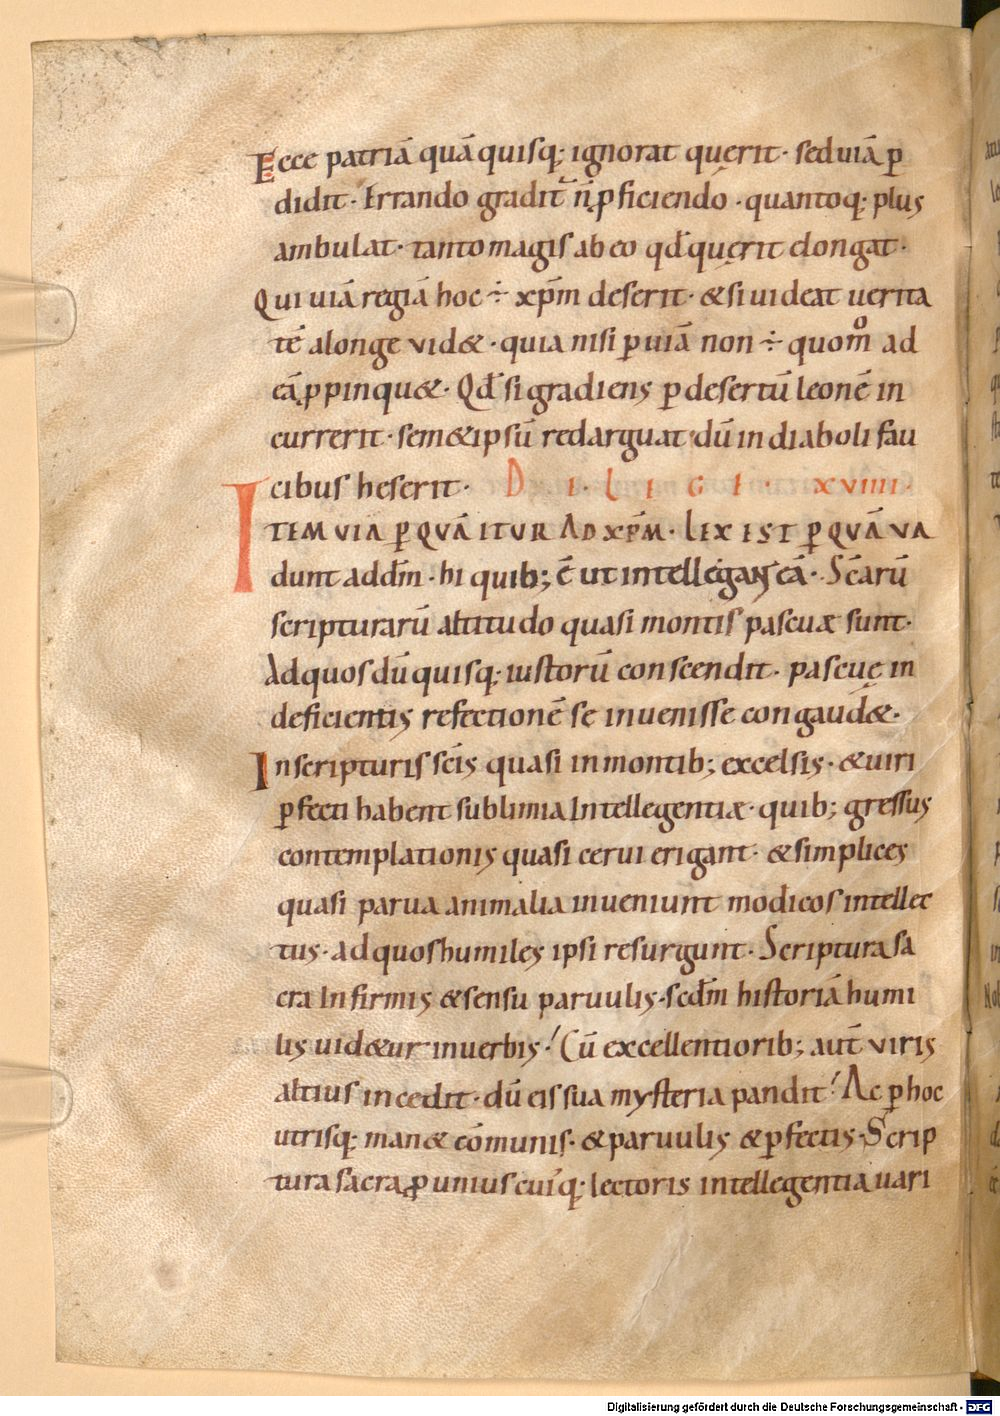 Ecce patriā quā quisq; ignorat quęrit· sed uiā ꝑ
didit· Errando gradit᷑ n̄ ꝓficiendo · quantoq; plus
ambulat· tanto magis ab eo qđ quęrit elongat·
Qui uiā regiā hoc ÷ xp̄m deserit· & si uideat uerita
tē alonge vid& · quia nisi ꝑ uiā non ÷ quom̊ ad
eā ꝓpinqu&· Qđ si gradiens ꝑ desertū leonē in
currerit· sem&ipsū redarguat· dū in diaboli fau
cibus heserit· D I L I G I · XVIIII·
ITEM VIA ꝑ QVĀ ITUR AD XP̄M· LEX EST ꝑ QVĀ VA
dunt addm̄ · hi quib; ē ut intellegant eā· Scārū
scripturarū altitudo quasi montis pascuæ sunt·
Ad quos dū quisq; iustorū conscendit· pascuę in
deficientis refectionē se inuenisse congaud&·
In scripturis sc̄is quasi in montib; excelsis· & uiri
ꝑfecti habent sublimia Intellegentiæ· quib; gressus
contemplationis quasi cerui erigant· & simplices
quasi parua animalia inueniunt modicos intellec
tus· ad quos humiles ipsi resurgunt· Scriptura sa
cra Infirmis & sensu paruulis· scdm̄ historiā humi
lis uid&ur inuerbis! Cū excellentiorib; aut̄ viris
altius incedit· dū eis sua mysteria pandit! Ac ꝑ hoc
utrisq; man& cōmunis· & paruulis & ꝑfectis· Scrip
tura sacra ꝓ uniuscuiq; lectoris intellegentia uari
Digitalisierung gefördert durch die Deutsche Forschungsgemeinschaft - DFG